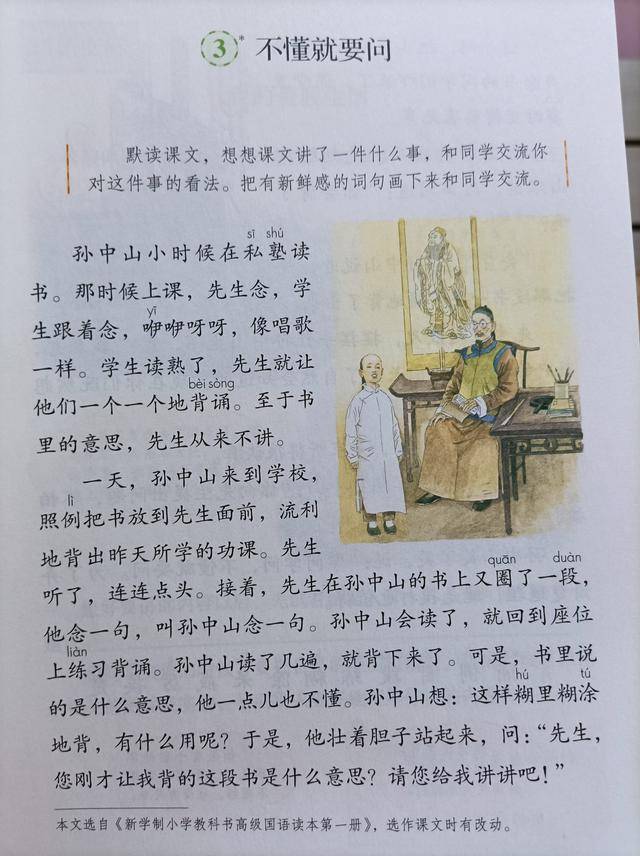 3* 不懂就要问
默读课文，想想课文讲了一件什么事，和同学交流你
对这件事的看法。把有新鲜感的词句画下来和同学交流。
sī shú
孙中山小时候在私塾读
书。那时候上课，先生念，学
yī
生跟着念，咿咿呀呀，像唱歌
一样。学生读熟了，先生就让
bèi sòng
他们一个一个地背诵。至于书
里的意思，先生从来不讲。
一天，孙中山来到学校，
lì
照例把书放到先生面前，流利
地背出昨天所学的功课。先生
quān duàn
听了，连连点头。接着，先生在孙中山的书上又圈了一段，
他念一句，叫孙中山念一句。孙中山会读了，就回到座位
liàn
上练习背诵。孙中山读了几遍，就背下来了。可是，书里说
hú tú
的是什么意思，他一点儿也不懂。孙中山想：这样糊里糊涂
地背，有什么用呢？于是，他壮着胆子站起来，问：“先生，
您刚才让我背的这段书是什么意思？请您给我讲讲吧！”
本文选自《新学制小学教科书高级国语读本第一册》，选作课文时有改动。